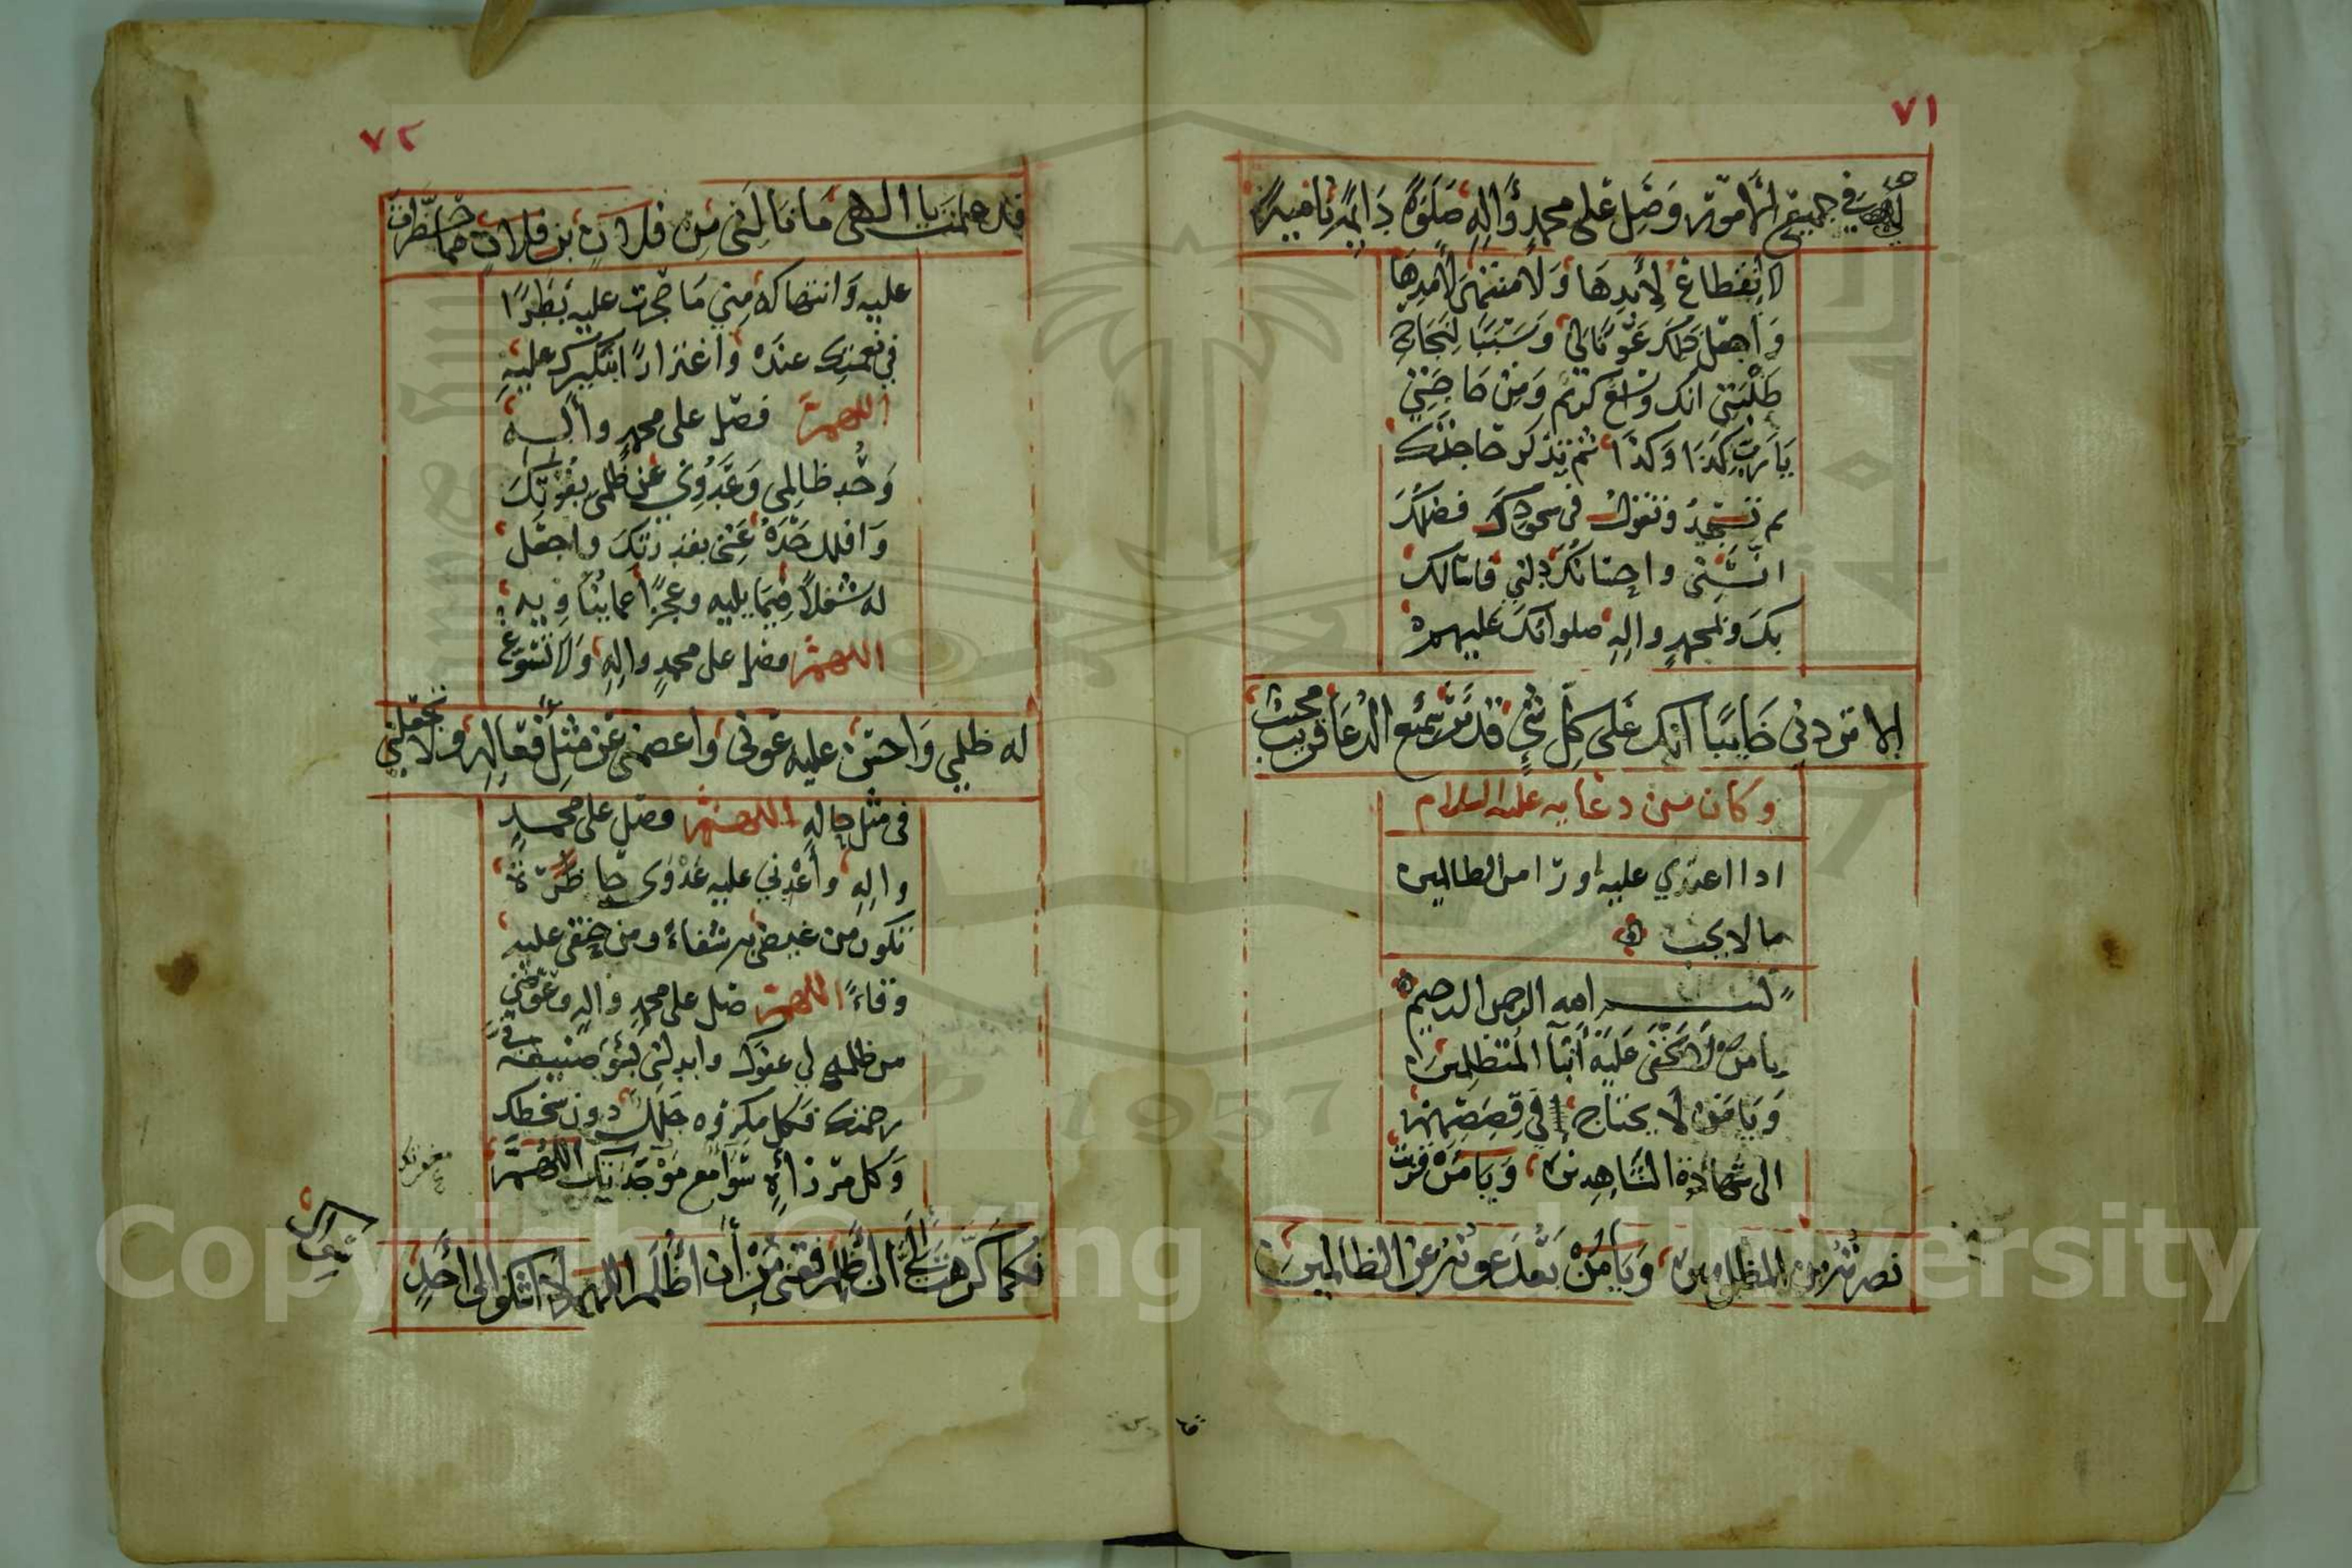 ٧١
لي في جميع الأمور وَصَلِّ عَلى محمدٍ وَّاٰلِهِ صَلَوةً دَايمةً نامية
لا انقطاعَ لِأَبدِهَا وَلا منتهى لأمدِهَا
وَاجعَل ذلكَ عَوْنًا لي وَسَبَبًا لنَجَاحِ
طَلِبَتي انك واسع كريم وَمِن حَاجَتي
يَا رَبِّ كَذَا وَكَذَا ثم تذكر حَاجتك
ثم تسجدُ وتقول في سجودك فضلكَ
انسَنِي واحسَانُكَ دلني فاسالك
بكَ وبمحمدٍ واٰلِهِ صلواتكَ عَليهم
الا تردني خَايبًا انك عَلى كلِّ شيٍ قدير سميع الدعا قريب مجيب
وكان من دعايه عليه السلام
اذا اعتدي عليه او رأى من الظالمين
ما لا يحب
بسم الله الرحمن الرحيم
يا من لا يَخفَى عَلَيْهِ أَنبَآ المُتَظَلِّمينَ
وَيَا مَن لا يحتاج في قِصَصِهِم
الى شهادة الشَّاهِدِينَ وَيَا مَنْ قربت
نصرته من المظلومين وَيَا مَنْ بَعُدَ عونه عَنِ الظالمين
٧٢
قد علمتَ يا الٰهي مَا نَالَني مِن فلان بن فلان مما حظرت
عليه وَانتهاكه مِني مَا حجرت عليه بَطَرًا
في نعمتِك عنده وَاغترارًا بنكيرك عليهِ
اللهمّ فصل على محمدٍ واٰله
وَخُذ ظالمِي وَعَدُوِّي عَن ظلمي بقوتِكَ
وَافلل حَدَّهُ عَنِّي بقدرتكَ واجعَل
له شغلاً فيمَا يليه وعجزًا عما يُناويه
اللهمّ فصل على محمدٍ واٰلِهِ وَلا تُسَوِّغ
له ظلمي وَاحسِن عليه عَوني وَاعصمني عَن مثل فعَاله ولا تجعلني
في مثل حالِهِ اللهمّ فصل على محمدٍ
واٰلِهِ وأعْدِني عليه عَدْوَى حاضرة
تكون من غيظي به شفاءً ومن حنقي عليه
وفاءً اللهمّ صل على محمدٍ واٰلهِ وعوضني
من ظلمه لي عفوك وابدلني بسُوءِ صنيعه في
رحمتك فكل مكروه جلل دون سخطك
وَكل مرزأةٍ سَوَا مع مَوْجدَتك اللهمّ
فكما كرّهت الَيَّ ان أظلم فقني مِنْ أَن أَظْلِمَ اللهم لا اشكو الى أحَدٍ
مغفرتك